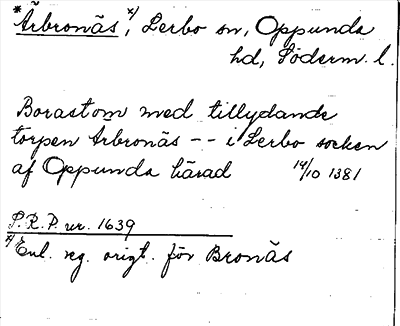 *Ärbronäs x), Lerbo sn, Oppunda
hd, Söderm. l.
Borastom med tillydande
torpen Arbronäs -- i Lerbo socken
af Oppunda härad 14/10 1381
S.R.P. nr. 1639
x) Enl. reg. origt. för Bronäs